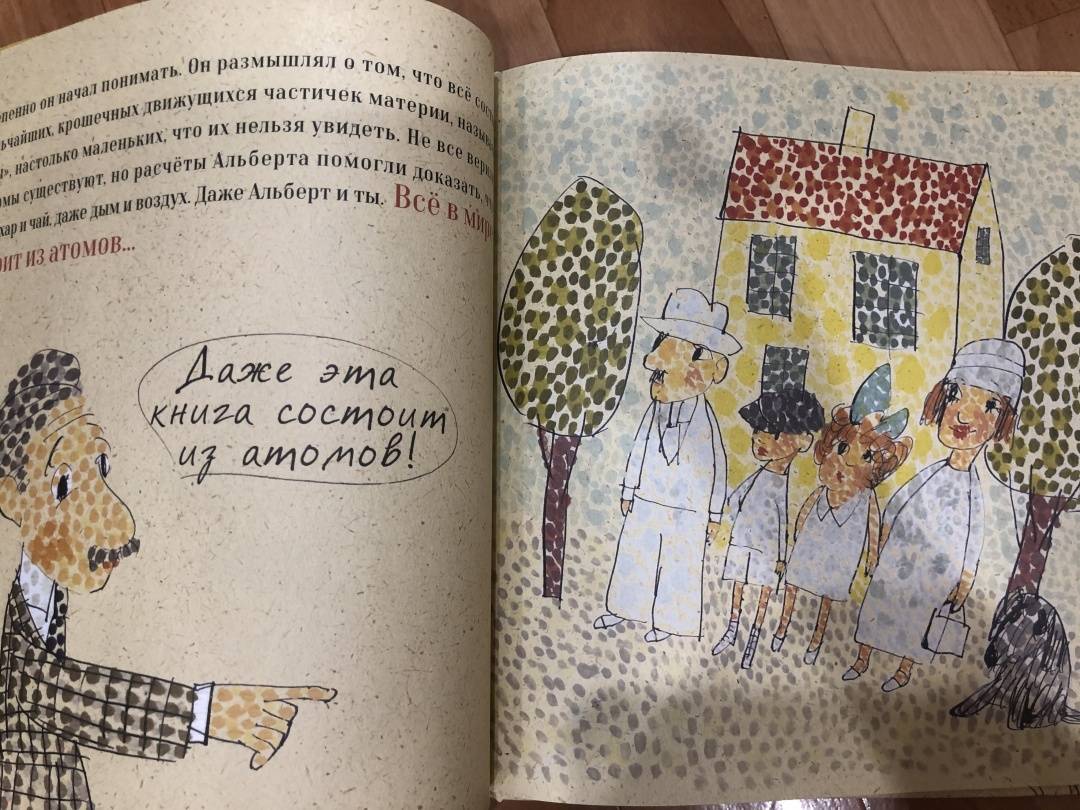 он начал понимать. Он размышлял о том, что всё
крошечных движущихся частичек материи,
настолько маленьких, что их нельзя увидеть. Не все
существуют, но расчёты Альберта помогли доказать,
и чай, даже дым и воздух. Даже Альберт и ты. Всё в
из атомов...
Даже эта
книга состоит
из атомов!